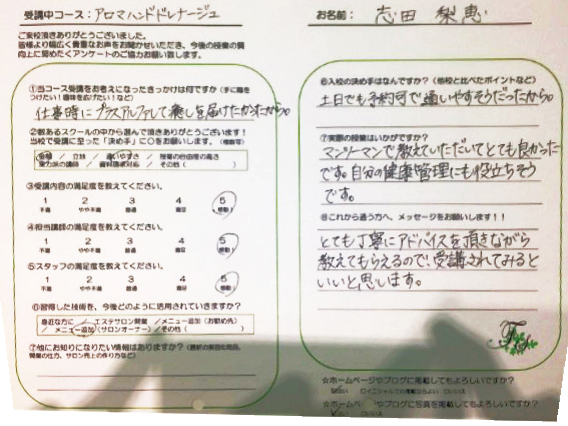 受講中コース：アロマハンドドレナージュ
ご来校頂きありがとうございました。
皆様より幅広く貴重なお声をお聞かせいただき、今後の授業の質
向上に努めたくアンケートのご協力お願い致します。
①当コース受講をお考えになったきっかけは何ですか（手に職を
つけたい！趣味を広げたい！など）
仕事時にプラスアルファして癒しを届けたかったから。
②数あるスクールの中から選んで頂きありがとうございます！
当校で受講に至った「決め手」に〇をお願いします。（複数可）
金額 / 立地 / 通いやすさ / 授業の自由度の高さ
実力派の講師 / 資料請求対応 / その他（ ）
③受講内容の満足度を教えてください。
1 2 3 4 5
不満 やや不満 普通 満足 感動
④担当講師の満足度を教えてください。
1 2 3 4 5
不満 やや不満 普通 満足 感動
⑤スタッフの満足度を教えてください。
1 2 3 4 5
不満 やや不満 普通 満足 感動
⑥習得した技術を、今後どのように活用されていきますか？
身近な方に / エステサロン開業 / メニュー追加（お勤め先）
/ メニュー追加（サロンオーナー） / その他（ ）
⑦他にお知りになりたい情報はありますか？
開業の仕方、サロン売上の作り方など）
お名前： 志田 梨恵
⑥入校の決め手はなんですか？（他校と比べたポイントなど）
土日でも予約可で通いやすそうだったから。
⑦実際の授業はいかがですか？
マンツーマンで教えていただいてとても良かった
です。自分の健康管理にも役立ちそう
です。
⑧これから通う方へ、メッセージをお願いします！！
とても丁寧にアドバイスを頂きながら
教えてもらえるので、受講されてみると
いいと思います。
☆ホームページやブログに掲載してもよろしいですか？
☆ホームページやブログに写真を掲載してもよろしいですか？